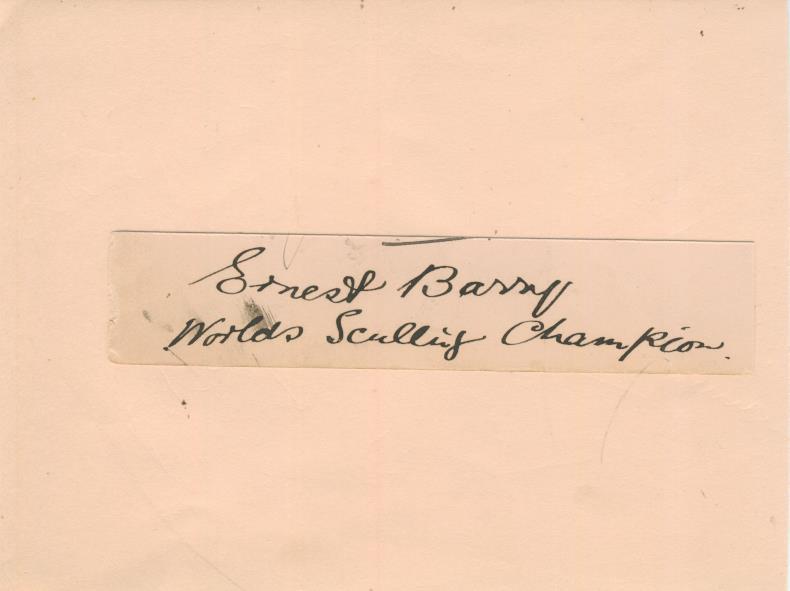 Ernest Barry
Worlds Sculling Champion.